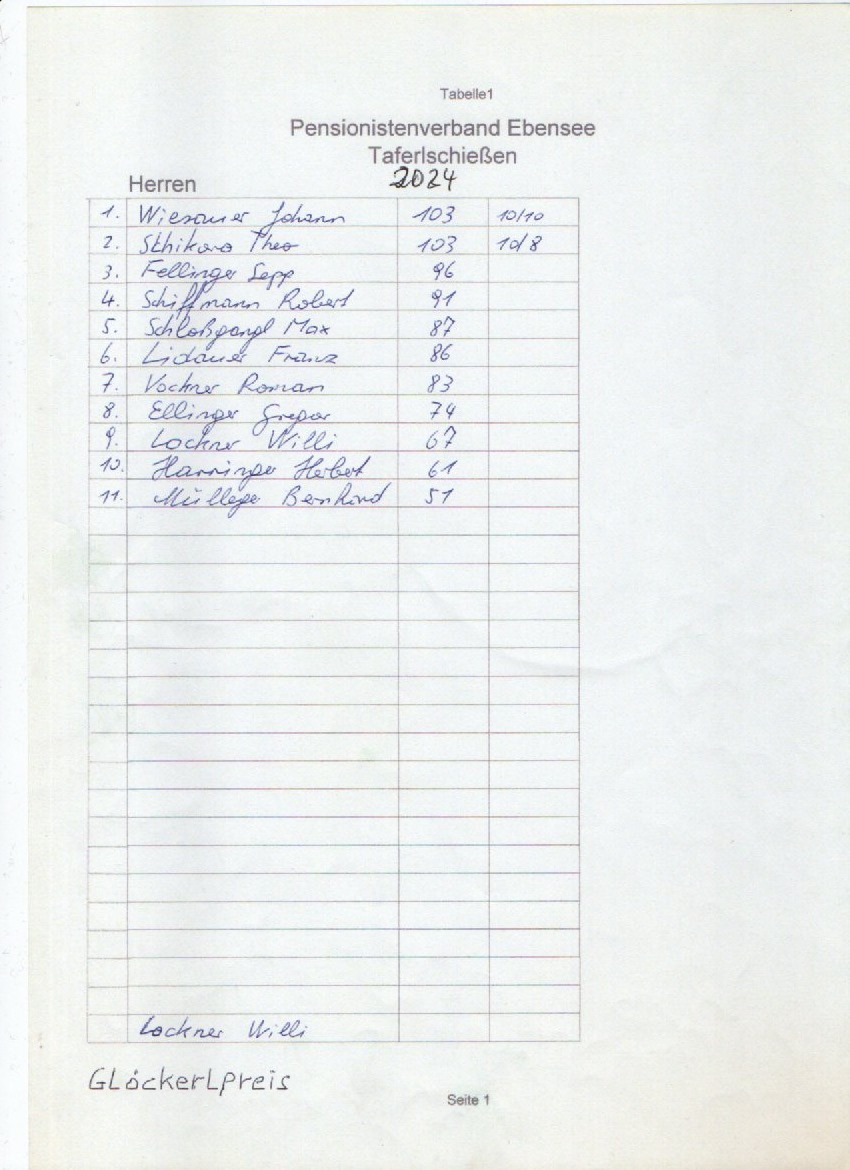 Tabelle1
Pensionistenverband Ebensee
Taferlschießen
Herren 2024
1. Wiesauer Johann 103 10/10
2. Sthikava Theo 103 10/8
3. Fellinger Sepp 96
4. Schiffmann Robert 91
5. Schloßgangl Max 87
6. Lidauer Franz 86
7. Vochner Roman 83
8. Ellinger Gregor 74
9. Lockner Willi 67
10. Harringer Herbert 61
11. Müllegger Bernhard 51
Lockner Willi
GLöckerLpreis
Seite 1